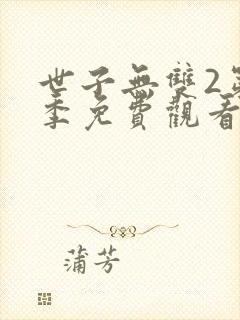 世子無雙2第
季免費觀看
蒲芳